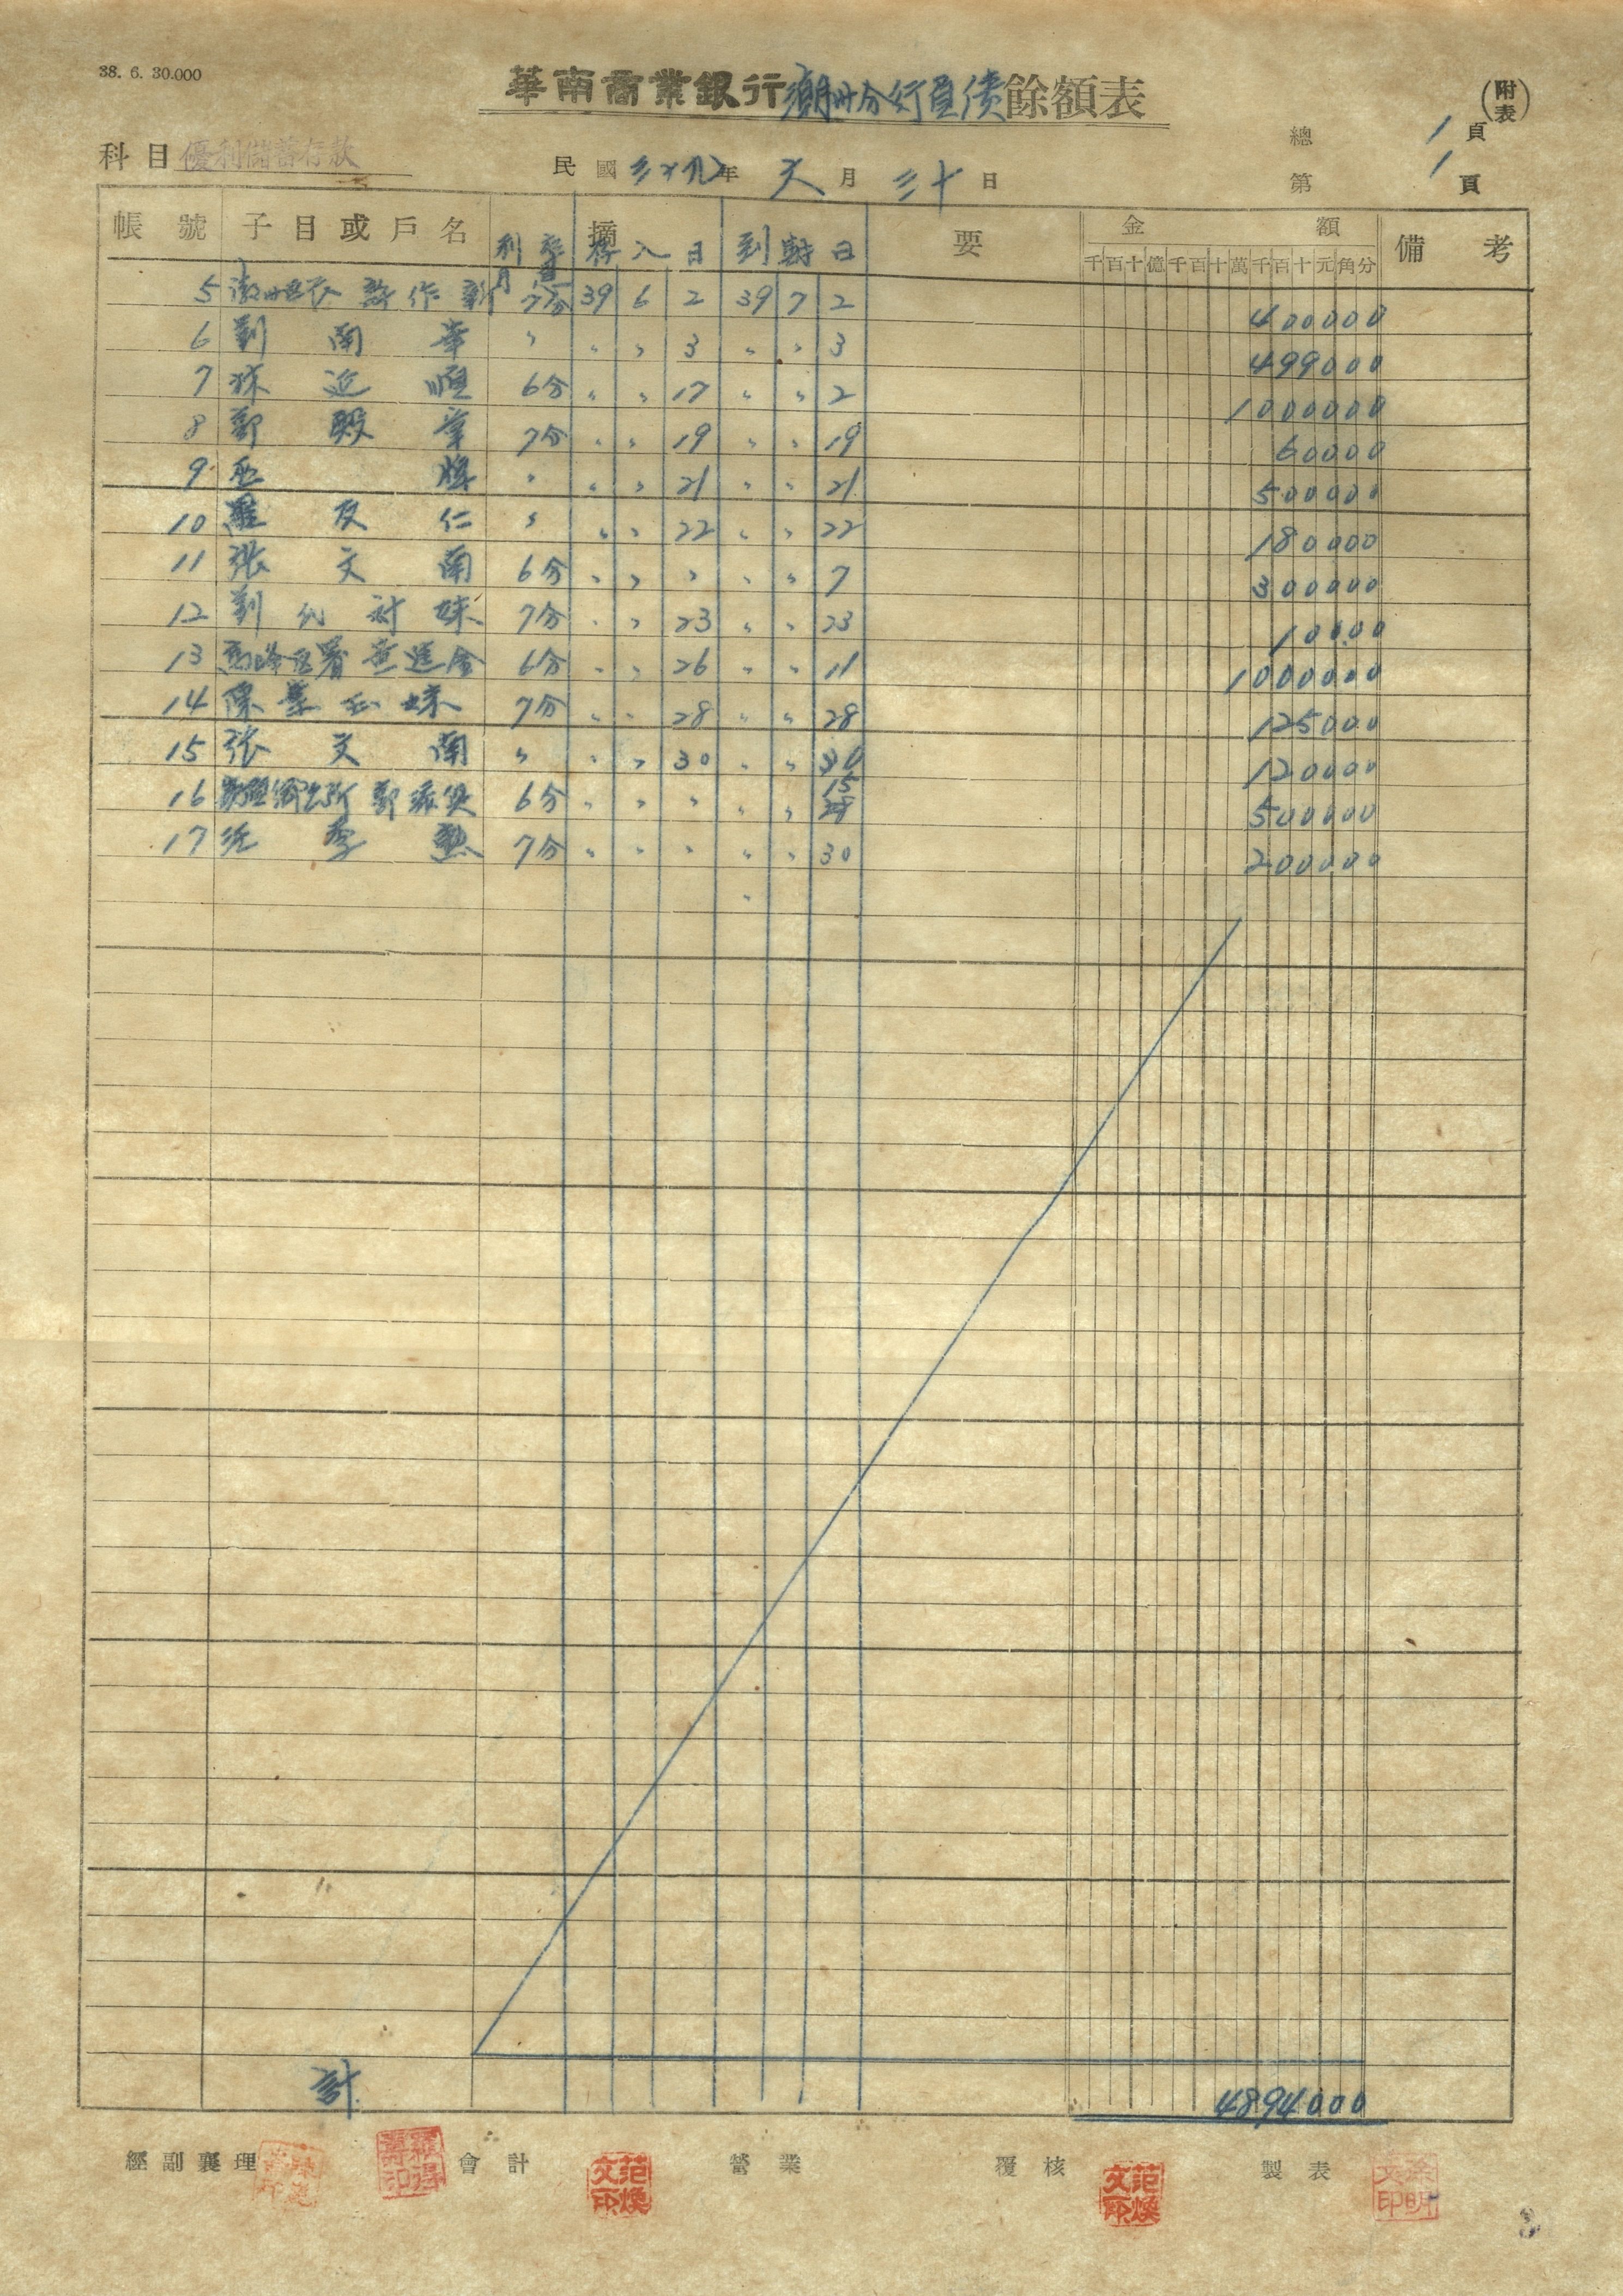 38. 6. 30.000
華南商業銀行潮州分行負債餘額表
(附表)
總 1 頁
科目 優利儲蓄存款
民國 三十九 年 六 月 三十 日
第 1 頁
帳號 子目或戶名 摘要 金額 備考
利率 存入日 到期日
千百十億千百十萬千百十元角分
5 許作新 月息7分 39 6 2 39 7 2 400000
6 劉南華 〃 〃 〃 3 〃 〃 3 499000
7 林近恒 6分 〃 〃 17 〃 〃 2 1000000
8 鄭殿章 7分 〃 〃 19 〃 〃 19 60000
9 〃 〃 〃 21 〃 〃 21 500000
10 羅友仁 〃 〃 〃 22 〃 〃 22 180000
11 張文南 6分 〃 〃 〃 〃 〃 7 300000
12 劉 妹 7分 〃 〃 23 〃 〃 23 10000
13 署黃進金 6分 〃 〃 26 〃 〃 11 1000000
14 陳葉玉妹 7分 〃 〃 28 〃 〃 28 125000
15 張文南 〃 〃 〃 30 〃 〃 30 120000
16 鄭 6分 〃 〃 〃 〃 〃 15 500000
17 李勲 7分 〃 〃 〃 〃 〃 30 200000
〃
計 4894000
經副襄理 會計 營業 覆核 製表
范煥文印
范煥文印